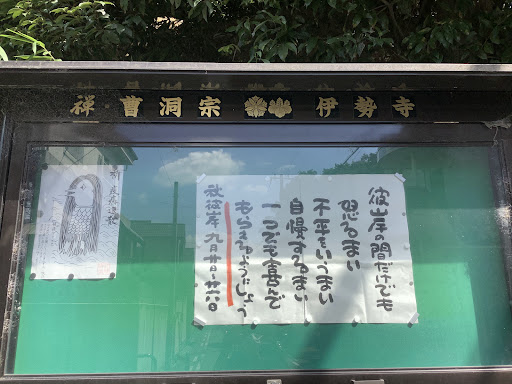 禅曹洞宗 伊勢寺
彼岸の間だけでも
怒るまい
不平をいうまい
自慢するまい
一つでも喜んで
もらえるようにしよう
秋彼岸 九月廿日〜廿六日